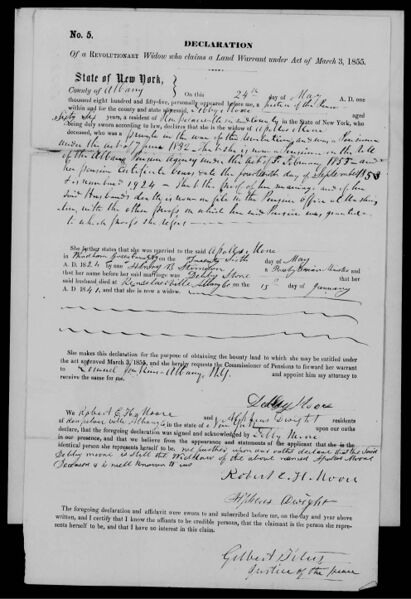 No. 5.
DECLARATION
Of a REVOLUTIONARY Widow who claims a Land Warrant under Act of March 3, 1855.
State of New York,
County of Albany
On this 24th day of May A. D. one
thousand eight hundred and fifty-five, personally appeared before me, a Justice of the Peace
within and for the county and state aforesaid, aged
Sixty Six years, a resident of in said county in the State of New York, who
being duly sworn according to law, declares that she is the widow of Apollos Moore
deceased, who was a in the war of the Revolution and was a Pensioner
under the act of 7 June 1832 That she is now a Pensioner on the roll
of the Albany Pension Agency under the act of 3 February 1853 and
her pension Certificate bears date the fourteenth day of September 1853
& is number 1924 — That the proof of her marriage and of her
said Husbands death is now on file in the Pension office at
with the other proofs on which her said Pension was
to which proofs she refers
She further states that she was married to the said Apollos Moore
in on the Twenty Sixth day of May
A. D. 18 by one a Presbyterian Minister and
that her name before her said marriage was Debby Stone that her
said husband died at Rensselaerville Albany Co on the 15 day of January
A D 1841, and she is now a widow.
She makes this declaration for the purpose of obtaining the bounty land to which she may be entitled
under the act approved March 3, 1855, and she hereby requests the Commissioner of Pensions to forward her warrant
to Lemuel Jenkins Albany, N.Y. and appoint him my attorney to
receive the same for me.
Debby Moore
We Robert E. H. Moore and Alpheus Dwight residents
of in the state of New York upon our oaths
declare that the foregoing declaration was signed and acknowledged by Debby Moore
in our presence, and that we believe from the appearance and statements of the applicant that she is the
identical person she represents herself to be. we further upon our oaths declare that the said
Debby Moore is still the Widow of the above named Apollos Moore
Deceased & is well known to us
Robert E. H. Moore
Alpheus Dwight
The foregoing declaration and affidavit were sworn to and subscribed before me, on the day and year above
written, and I certify that I know the affiants to be credible persons, that the claimant is the person she represents herself to be, and that I have no interest in this claim.
Gilbert Titus
Justice of the peace